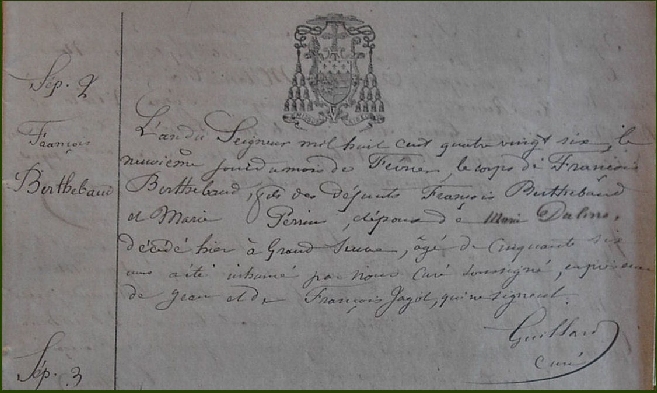 Sép. 2
François
Berthebaud
L'an du Seigneur mil huit cent quatre vingt six, le
neuvième jour du mois de Février, le corps de François
Berthebaud, fils des défunts François Berthebaud
et Marie Perrin, époux de Marie
décédé hier à Grand, âgé de cinquante six
ans a été inhumé par nous curé soussigné, en présence
de Jean et de François Jagot, qui ne signent.
Guillard
curé
Sép. 3